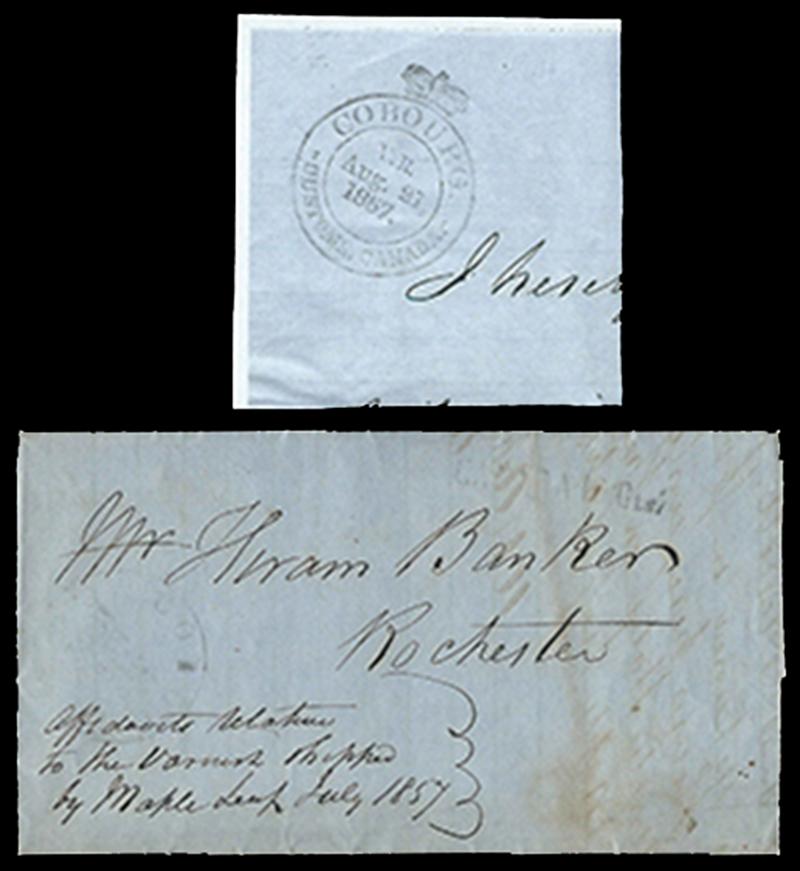 COBOURG.
Aug. 21
1857.
CUSTOMS, CANADA.
I here
Mr Hiram Banker
Rochester
Affidavits Relative
to the Varnish Shipped
by Maple Leaf July 1857